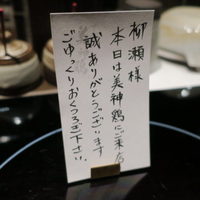 柳瀬様
本日は美神鶏にご来店
誠ありがとうございます
ごゆっくりおくつろぎ下さい。